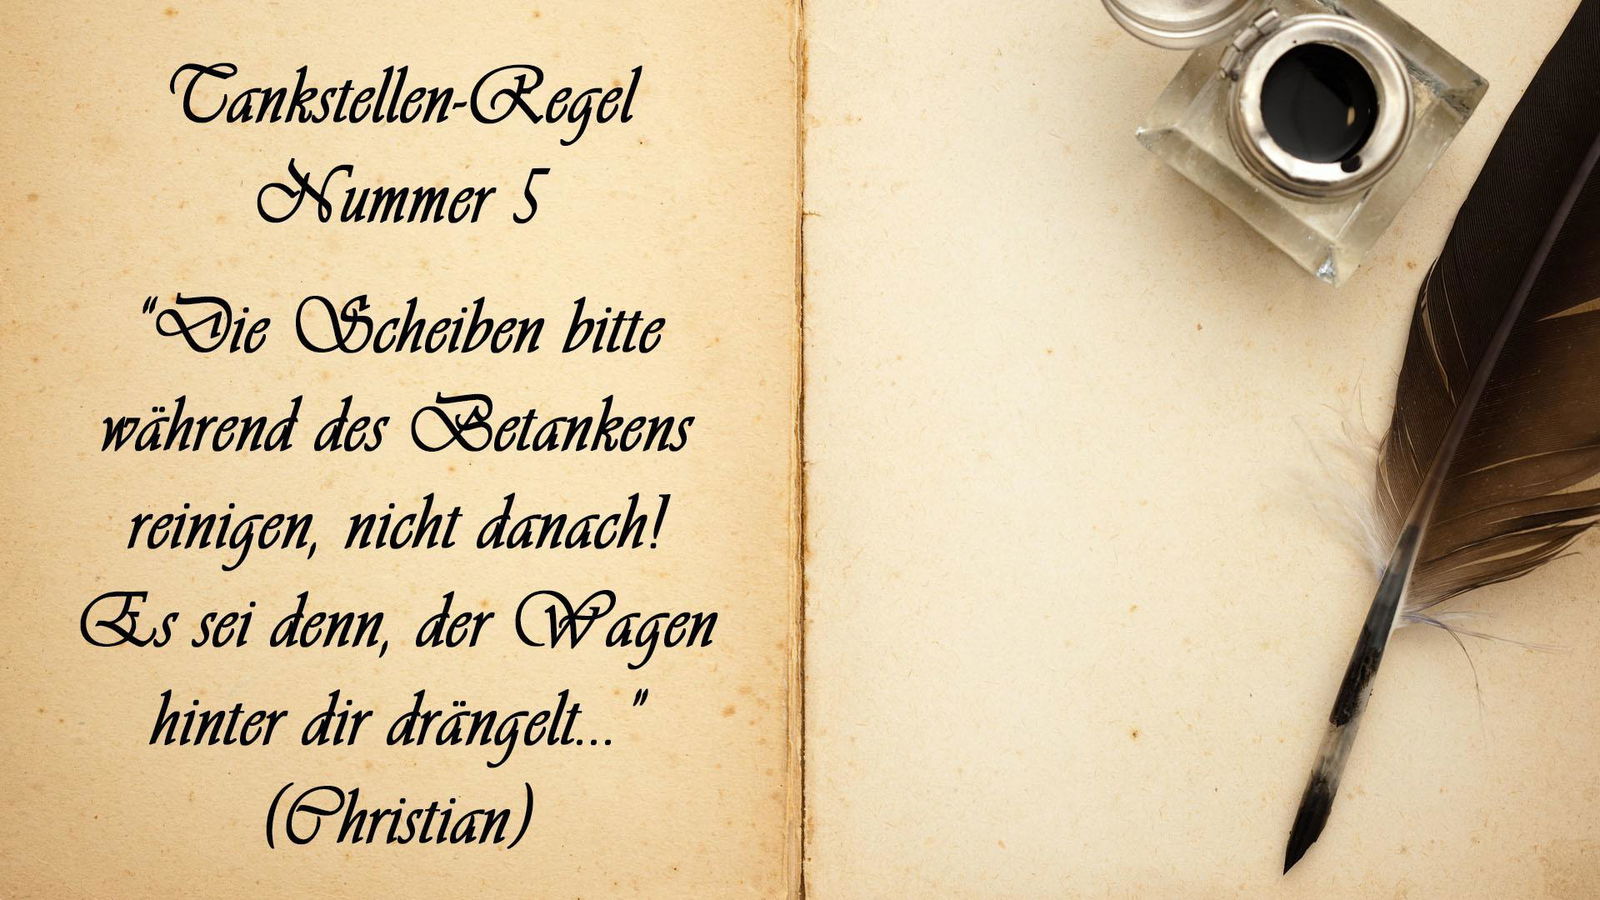 Tankstellen-Regel
Nummer 5
"Die Scheiben bitte
während des Betankens
reinigen, nicht danach!
Es sei denn, der Wagen
hinter dir drängelt..."
(Christian)